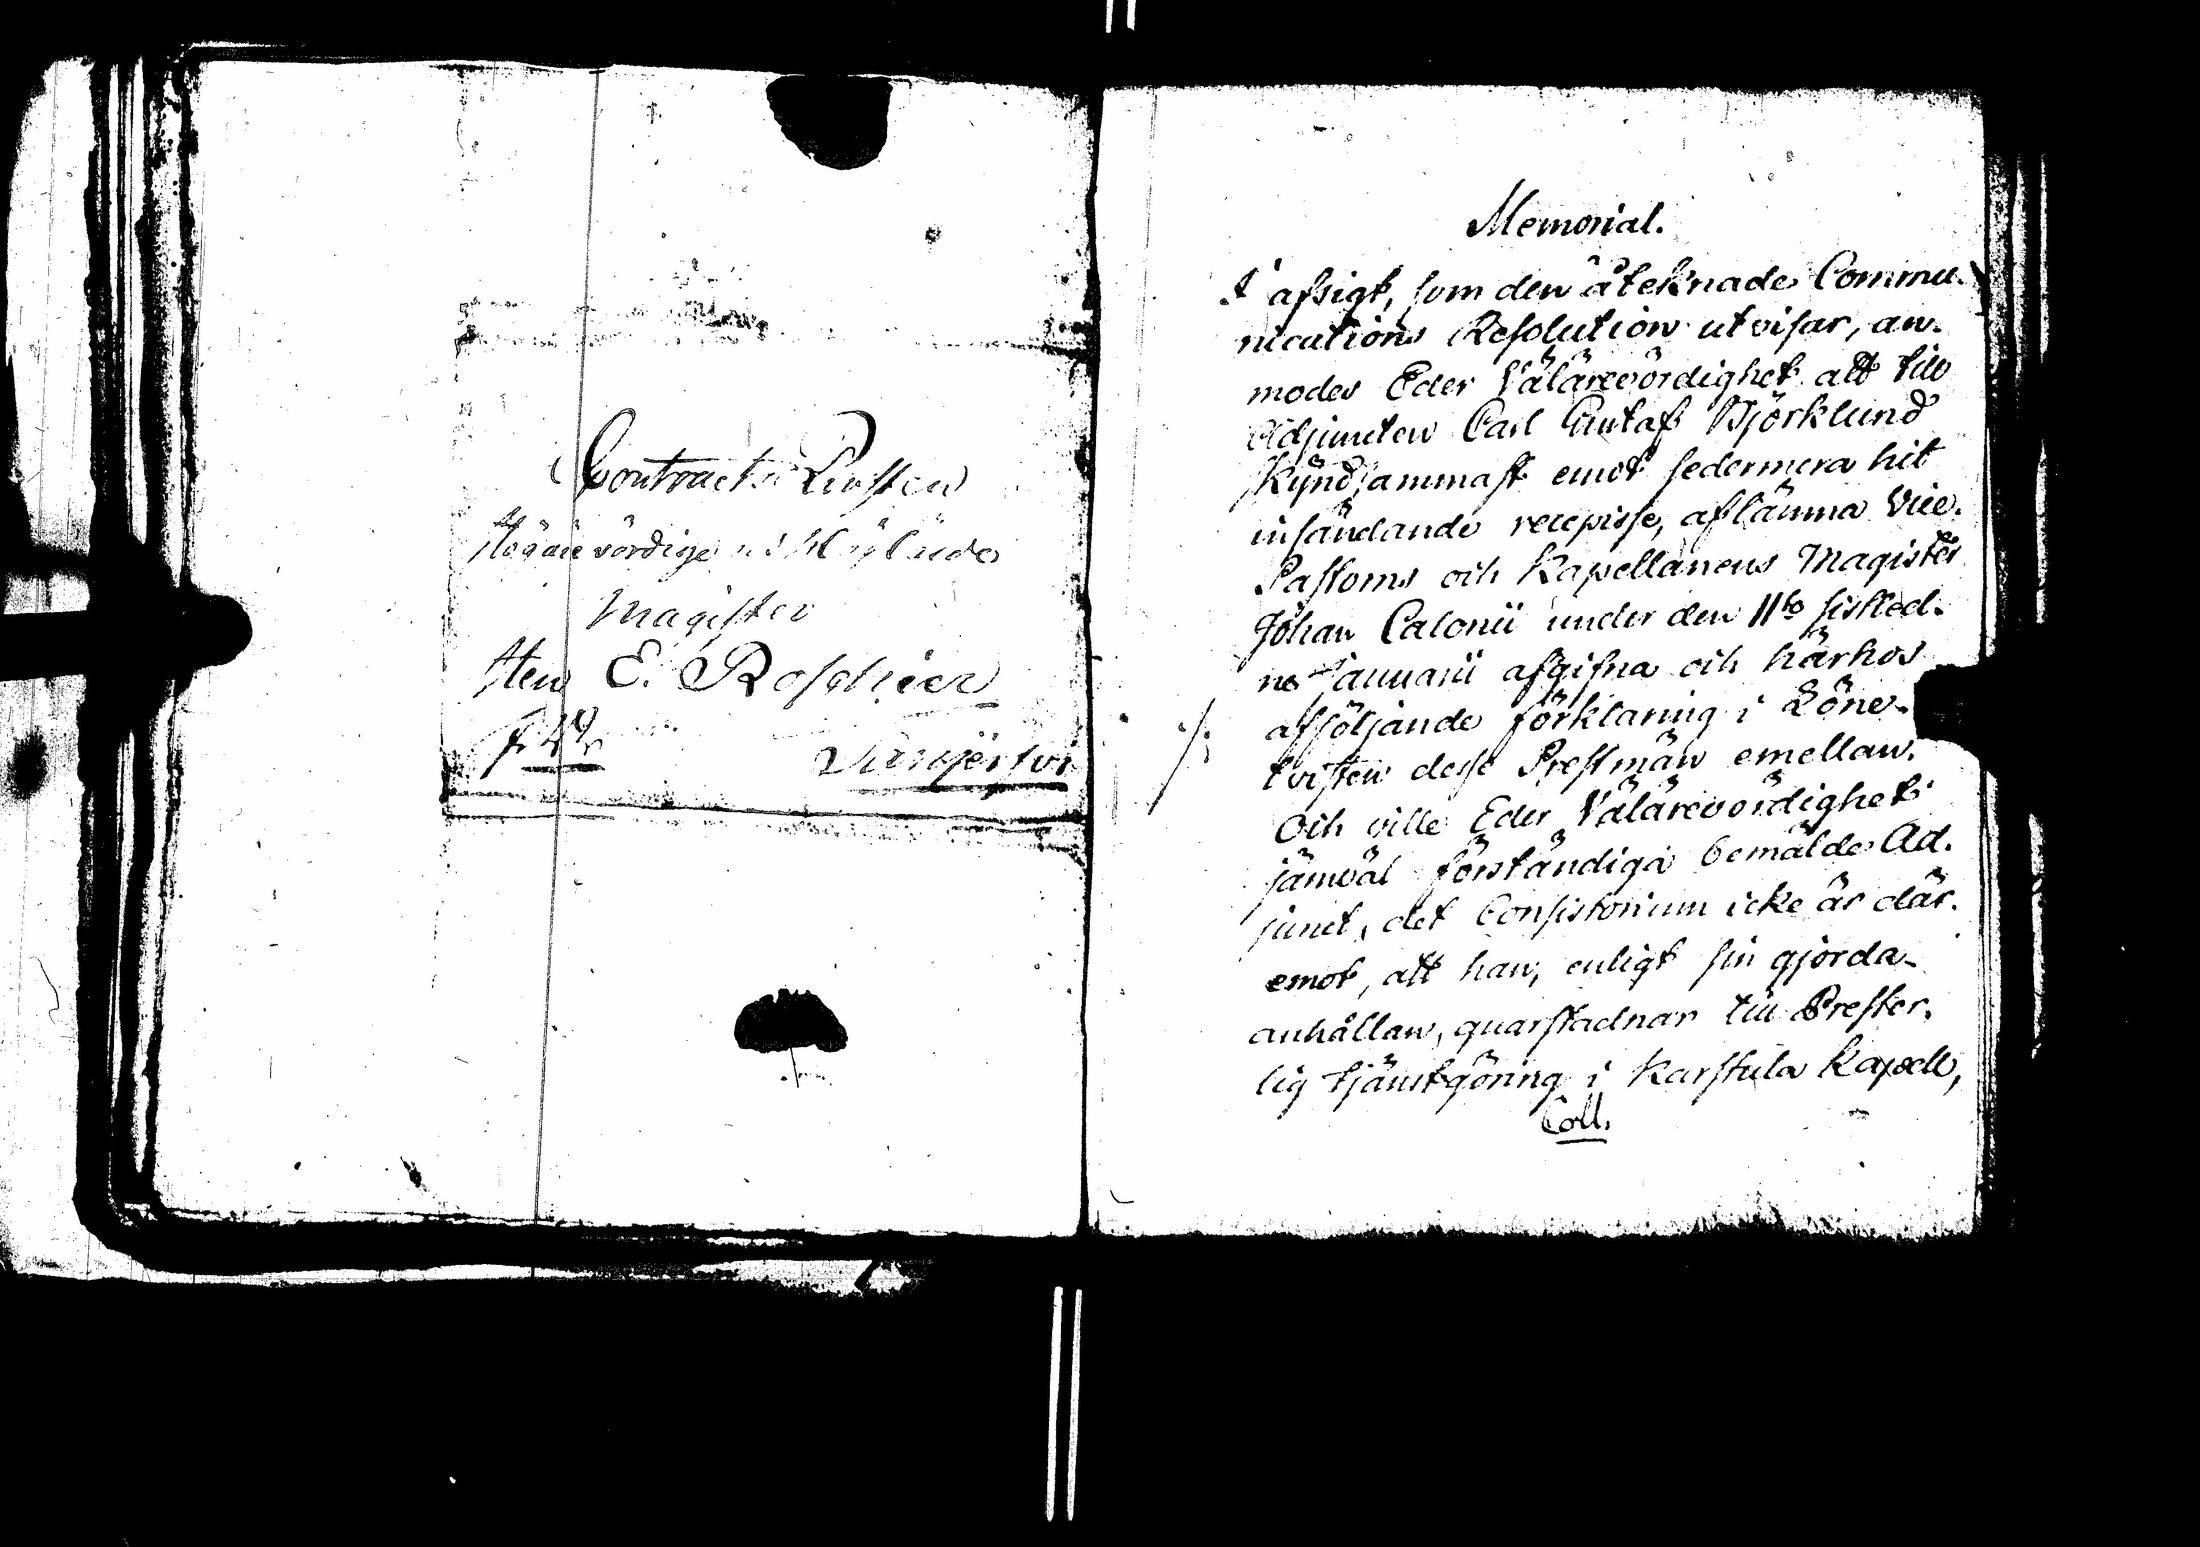 Contracts Prosten
Högärevördige och Höglärde
Magister
Herr E. Roschier
Saarijärvi
Memorial.
I afsigt, som den åteknade Commu-
nications Resolution utvisar, an-
modes Eder Välärevördighet att till
Adjuncten Carl Gustaf Björklund
skyndsammast emot sedermera hit
insändande recepisse, aflämna Vice-
Pastorns och Kapellanens Magister
Johan Calonii under den 11te sistled-
ne Januarii afgifna och härhos
./. afföljande förklaring i Löne-
tvisten desse Prestmän emellan.
Och ville Eder Välärevördighet
jämväl förständiga bemälde Ad-
junct, det Consistorium icke är där-
emot, att han, enligt sin gjorda
anhållan, quarstadnar till Prester-
lig tjänstgöring i Karstula Kapell,
Coll.